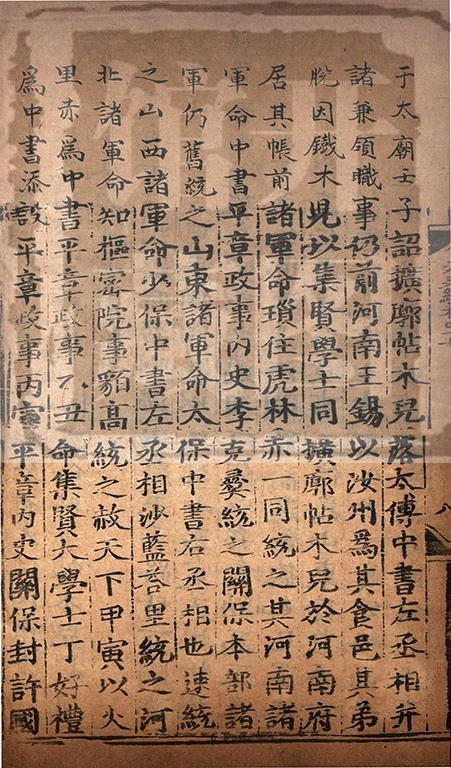 于太廟壬子詔擴廓帖木兒落太傅中書左丞相并
諸兼領職事仍前河南王錫以汝州爲其食邑其弟
脫因鐵木児以集賢學士同擴廓帖木兒於河南府
居其帳前諸軍命瑣住虎林赤一同統之其河南諸
軍命中書平章政事內史李克彝統之關保本部諸
軍仍舊統之山東諸軍命太保中書右丞相也速統
之山西諸軍命少保中書左丞相沙藍荅里統之河
北諸軍命知樞密院事貊高統之赦天下甲寅以火
里赤爲中書平章政事乙丑命集賢大學士丁好禮
爲中書添設平章政事丙寅平章内史關保封許國